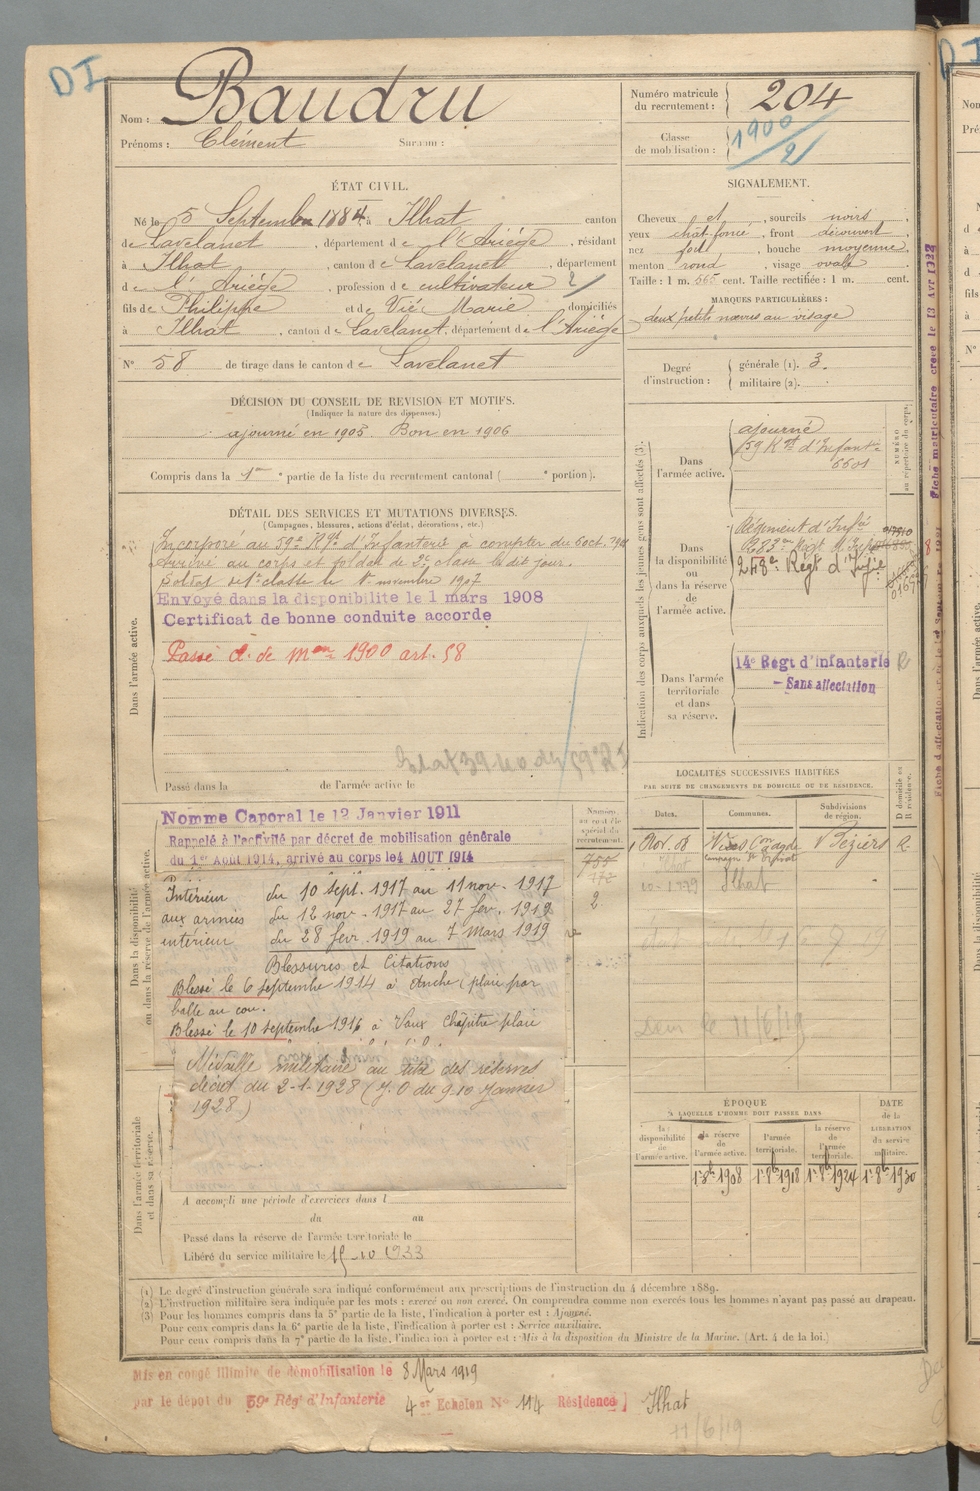 DI
Nom : Baudru
Prénoms : Clément Surnom :
Numéro matricule du recrutement : 204
Classe de mobilisation : 1900/2
ÉTAT CIVIL.
Né le 5 Septembre 1884, à Ilhat canton
de Lavelanet, département de l'Ariège, résidant
à Ilhat, canton de Lavelanet, département
de l'Ariège, profession de cultivateur 2/
fils de Philippe et de Vié Marie domiciliés
à Ilhat, canton de Lavelanet, département de l'Ariège
N° 58 de tirage dans le canton de Lavelanet
SIGNALEMENT.
Cheveux et, sourcils noirs
yeux chât. foncé, front découvert
nez fort, bouche moyenne
menton rond, visage ovale
Taille : 1 m. 565 cent. Taille rectifiée : 1 m. cent.
MARQUES PARTICULIÈRES :
deux petits nævus au visage
Degré d'instruction : générale (1). 3.
militaire (2).
DÉCISION DU CONSEIL DE REVISION ET MOTIFS.
(Indiquer la nature des dispenses.)
ajourné en 1905. Bon en 1906
Compris dans la 1re partie de la liste du recrutement cantonal ( portion).
DÉTAIL DES SERVICES ET MUTATIONS DIVERSES.
(Campagnes, blessures, actions d'éclat, décorations, etc.)
Dans l'armée active.
Incorporé au 59e Rgt d'Infanterie à compter du 6 oct.
Arrivé au corps et soldat de 2e classe le dit jour.
Soldat de 1e classe le 1er novembre 1907
Envoyé dans la disponibilite le 1 mars 1908
Certificat de bonne conduite accorde
Passé cl. de Mon 1900 art. 58
Passé dans la de l'armée active le
Indication des corps auxquels les jeunes gens sont affectés (3).
NUMÉRO au répertoire du corps.
Dans l'armée active.
ajourné
59 Rgt d'Infante
6601
Dans la disponibilité ou dans la réserve de l'armée active.
Régiment d'Infie
248e Régt d'Infie
Dans l'armée territoriale et dans sa réserve.
14e Régt d'infanterie R
- Sans affectation
Fiche matriculaire créée le 13 Avr 1922
LOCALITÉS SUCCESSIVES HABITÉES
PAR SUITE DE CHANGEMENTS DE DOMICILE OU DE RÉSIDENCE.
Dates. Communes. Subdivisions de région. D domicile ou R résidence.
1 Nov. 08 Béziers R
Ilhat
Dans la disponibilité ou dans la réserve de l'armée active.
Nomme Caporal le 12 Janvier 1911
Rappelé à l'activité par décret de mobilisation générale
du 1er Août 1914, arrivé au corps le 4 AOUT 1914
Intérieur du 10 sept. 1917 au 11 nov. 1917
aux armées du 12 nov. 1917 au 27 fev. 1919
intérieur du 28 fevr. 1919 au 7 Mars 1919
Blessures et Citations
Blessé le 6 septembre 1914 à (plaie par
balle au cou.
Blessé le 10 septembre 1916 à Vaux Chapitre plaie
Médaille militaire au titre des réserves
décret du 2-1-1928 (J.O du 9-10 Janvier
1928)
2
Dem le 11/6/19
Dans l'armée territoriale et dans sa réserve.
A accompli une période d'exercices dans l
du au
Passé dans la réserve de l'armée territoriale le
Libéré du service militaire le 15-10 1933
ÉPOQUE
A LAQUELLE L'HOMME DOIT PASSER DANS
DATE de la LIBÉRATION du service militaire.
la disponibilité de l'armée active.
la réserve de l'armée active.
l'armée territoriale.
la réserve de l'armée territoriale.
1r 8b 1908 1r 8b 1918 1r 8b 1924 1r 8b 1930
(1) Le degré d'instruction générale sera indiqué conformément aux prescriptions de l'instruction du 4 décembre 1889.
(2) L'instruction militaire sera indiquée par les mots : exercé ou non exercé. On comprendra comme non exercés tous les hommes n'ayant pas passé au drapeau.
(3) Pour les hommes compris dans la 5e partie de la liste, l'indication à porter est : Ajourné.
Pour ceux compris dans la 6e partie de la liste, l'indication à porter est : Service auxiliaire.
Pour ceux compris dans la 7e partie de la liste, l'indication à porter est : Mis à la disposition du Ministre de la Marine. (Art. 4 de la loi.)
Mis en congé illimité de démobilisation le 8 Mars 1919
par le dépôt du 59e Régt d'Infanterie 4er Echelon N° 114 Résidence Ilhat
11/6/19